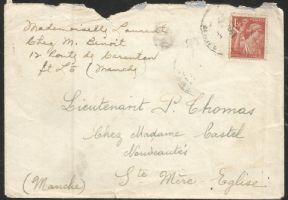 Mademoiselle Laurent
Chez M. Benoit
12 Route de Carentan
St Lô (Manche)
Lieutenant P. Thomas
Chez Madame Castel
Nouveautés
Ste Mère-Eglise
(Manche)